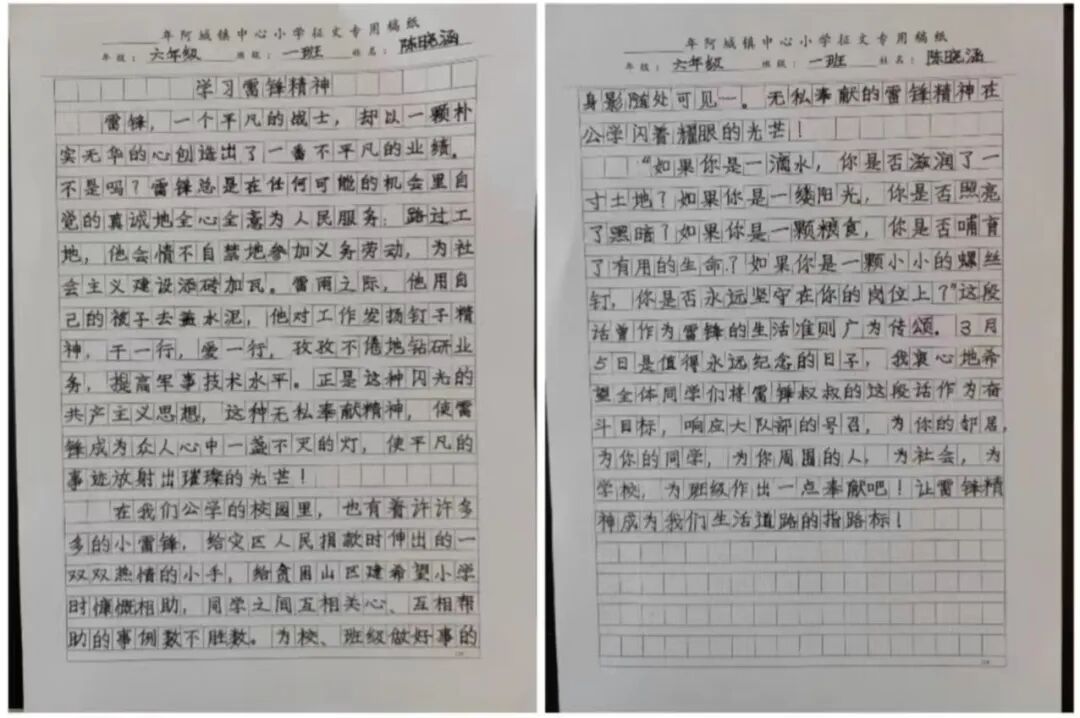 年阿城镇中心小学征文专用稿纸
年级：六年级 班级：一班 姓名：陈晓涵
学习雷锋精神
雷锋，一个平凡的战士，却以一颗朴
实无华的心创造出了一番不平凡的业绩。
不是吗？雷锋总是在任何可能的机会里自
觉的真诚地全心全意为人民服务：路过工
地，他会情不自禁地参加义务劳动，为社
会主义建设添砖加瓦。雷雨之际，他用自
己的被子去盖水泥，他对工作发扬钉子精
神，干一行，爱一行，孜孜不倦地钻研业
务，提高军事技术水平。正是这种闪光的
共产主义思想，这种无私奉献精神，使雷
锋成为众人心中一盏不灭的灯，使平凡的
事迹放射出璀璨的光芒！
在我们公学的校园里，也有着许许多
多的小雷锋，给灾区人民捐款时伸出的一
双双热情的小手，给贪困山区建希望小学
时慷慨相助，同学之间互相关心、互相帮
助的事例数不胜数。为校、班级做好事的
年阿城镇中心小学征文专用稿纸
年级：六年级 班级：一班 姓名：陈晓涵
身影随处可见一。无私奉献的雷锋精神在
公学闪着耀眼的光芒！
“如果你是一滴水，你是否滋润了一
寸土地？如果你是一缕阳光，你是否照亮
了黑暗？如果你是一颗粮食，你是否哺育
了有用的生命？如果你是一颗小小的螺丝
钉，你是否永远坚守在你的岗位上？”这段
话曾作为雷锋的生活准则广为传颂。3月
5日是值得永远纪念的日子，我衷心地希
望全体同学们将雷锋叔叔的这段话作为奋
斗目标，响应大队部的号召，为你的邻居，
为你的同学，为你周围的人，为社会，为
学校，为班级作出一点奉献吧！让雷锋精
神成为我们生活道路的指路标！